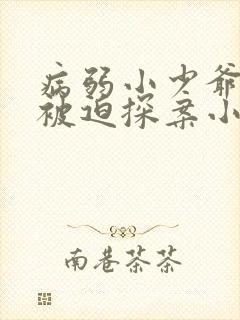 病弱小少爷
被迫探案小
南巷茶茶